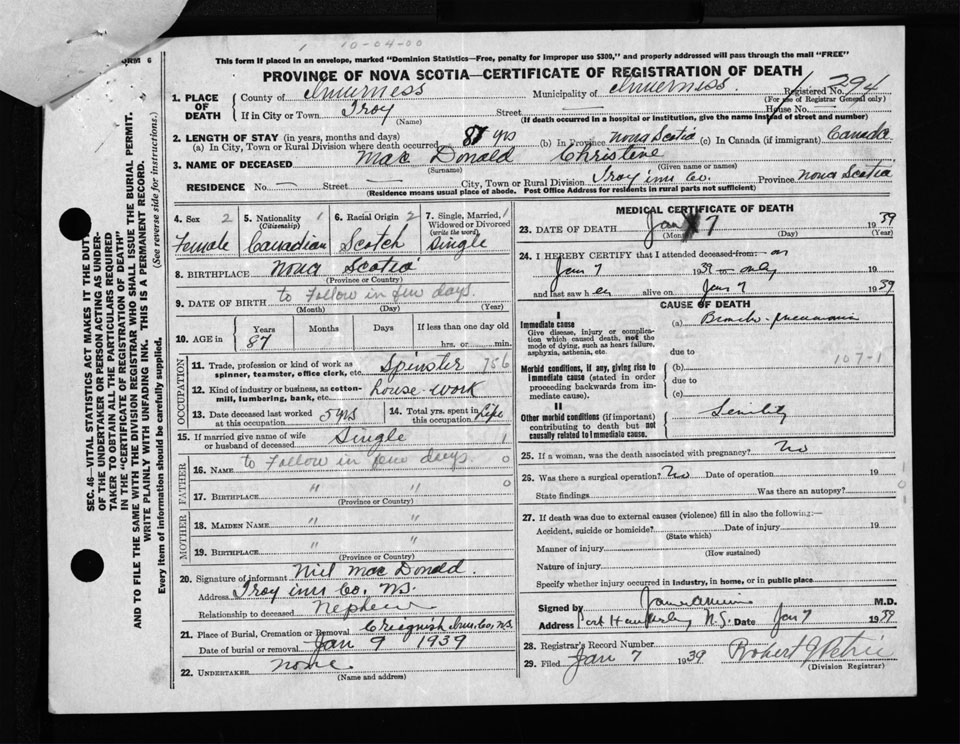 10-04-00
This form if placed in an envelope, marked "Dominion Statistics—Free, penalty for improper use $300," and properly addressed will pass through the mail "FREE"
ORM 6
PROVINCE OF NOVA SCOTIA—CERTIFICATE OF REGISTRATION OF DEATH
1. PLACE OF DEATH County of Inverness Municipality of Inverness. Registered No. 294
(For use of Registrar General only)
If in City or Town Troy Street — House No.
(Name) (If death occurred in a hospital or institution, give the name instead of street and number)
2. LENGTH OF STAY (in years, months and days)
(a) In City, Town or Rural Division where death occurred 87 yrs (b) In Province Nova Scotia (c) In Canada (if immigrant) Canada
3. NAME OF DECEASED Mac Donald Christene
(Surname) (Given name or names)
RESIDENCE No. — Street — City, Town or Rural Division Troy inv Co. Province Nova Scotia
(Residence means usual place of abode. Post Office Address for residents in rural parts not sufficient)
4. Sex 2 Female
5. Nationality 1 (Citizenship) Canadian
6. Racial Origin 2 Scotch
7. Single, Married, 1 Widowed or Divorced (write the word) Single
8. BIRTHPLACE Nova Scotia
(Province or Country)
9. DATE OF BIRTH to Follow in few days.
(Month) (Day) (Year)
10. AGE Years Months Days If less than one day old
87 hrs. or min.
OCCUPATION
11. Trade, profession or kind of work as spinner, teamster, office clerk, etc. Spinster 756
12. Kind of industry or business, as cotton-mill, lumbering, bank, etc. house-work
13. Date deceased last worked at this occupation 5 yrs 14. Total yrs. spent in this occupation Life
15. If married give name of wife or husband of deceased Single 1
FATHER
16. NAME to Follow in few days. 0
17. BIRTHPLACE " " 0
(Province or Country)
MOTHER
18. MAIDEN NAME " "
19. BIRTHPLACE " "
(Province or Country)
20. Signature of informant Niel Mac Donald.
Address Troy inv Co. N.S.
Relationship to deceased Nephew
21. Place of Burial, Cremation or Removal Creignish Inv. Co, N.S.
Date of burial or removal Jan 9 1939
22. UNDERTAKER None
(Name and address)
MEDICAL CERTIFICATE OF DEATH
23. DATE OF DEATH Jan 7 19 39
(Month) (Day) (Year)
24. I HEREBY CERTIFY that I attended deceased from: on
Jan 7 1939 to only 19
and last saw h er alive on Jan 7 1939
CAUSE OF DEATH
I
Immediate cause (a) Broncho-pneumonia
Give disease, injury or complication which caused death, not the mode of dying, such as heart failure, asphyxia, asthenia, etc.
due to 107-1
Morbid conditions, if any, giving rise to immediate cause (stated in order proceeding backwards from immediate cause).
(b)
due to
(c)
II
Other morbid conditions (if important) contributing to death but not causally related to immediate cause.
Senility
25. If a woman, was the death associated with pregnancy? No
26. Was there a surgical operation? No Date of operation 19
State findings Was there an autopsy?
27. If death was due to external causes (violence) fill in also the following:—
Accident, suicide or homicide? Date of injury 19
(State which)
Manner of injury
(How sustained)
Nature of injury
Specify whether injury occurred in industry, in home, or in public place
Signed by M.D.
Address Port Hawkesbury N.S. Date Jan 7 1939
28. Registrar's Record Number
29. Filed Jan 7 1939 Robert J Petrie
(Division Registrar)
SEC. 46—VITAL STATISTICS ACT MAKES IT THE DUTY OF THE UNDERTAKER OR PERSON ACTING AS UNDERTAKER TO OBTAIN ALL THE PARTICULARS REQUIRED IN THE "CERTIFICATE OF REGISTRATION OF DEATH" AND TO FILE THE SAME WITH THE DIVISION REGISTRAR WHO SHALL ISSUE THE BURIAL PERMIT.
WRITE PLAINLY WITH UNFADING INK. THIS IS A PERMANENT RECORD.
Every item of information should be carefully supplied. (See reverse side for instructions.)